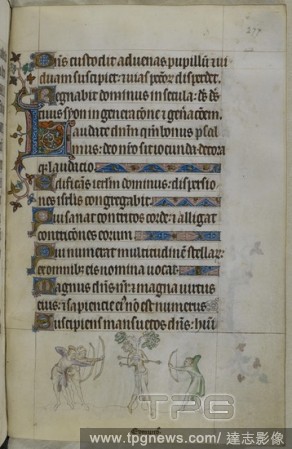 277
Dn̄s custodit aduenas pupillū ⁊ ui
duam suscipiet: ⁊ uias pecc̄or̄ disperdet.
Regnabit dominus in secula: dš dš
tuus syon in generac̄one ⁊ gen̄ac̄oem.
Laudate dn̄m qm̄ bonus psal
mus: deo nr̄o sit iocunda decora
q; laudacio
Edificās ierl̄m dominus: dispersio
nes isrl̄is congregabit.
Qui sanat contritos corde: ⁊ alligat
contric̄ones eorum
Qui numerat multitudinē stellar̄:
⁊ omnib; eis nomina uocat
Magnus dn̄s nr̄: ⁊ magna uirtus
eius: ⁊ sapiencie ei᷒ nō est numerus
Suscipiens mansuetos dn̄s: hūi
TPG
www.tpgnews.com / 達志影像